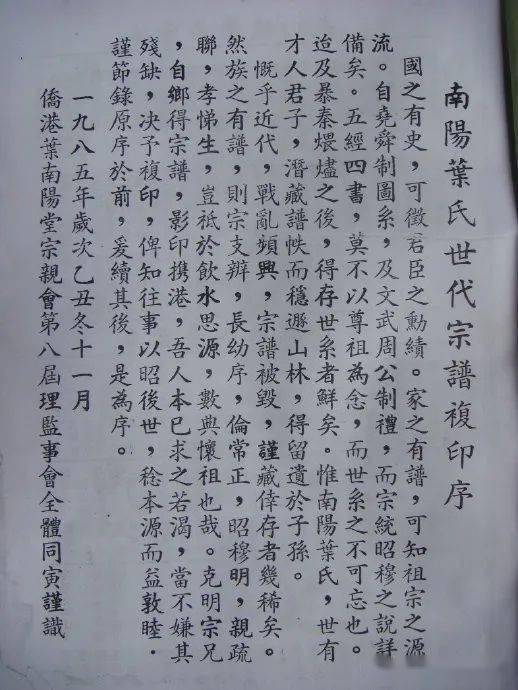 南陽葉氏世代宗譜複印序
國之有史，可徵君臣之勳績。家之有譜，可知祖宗之源
流。自堯舜制圖系，及文武周公制禮，而宗統昭穆之說詳
備矣。五經四書，莫不以尊祖為念，而世系之不可忘也。
迨及暴秦煨燼之後，得存世系者鮮矣。惟南陽葉氏，世有
才人君子，潛藏譜帙而穩遯山林，得留遺於子孫。
慨乎近代，戰亂頻興，宗譜被毀，謹藏倖存者幾稀矣。
然族之有譜，則宗支辦，長幼序，倫常正，昭穆明，親疏
聯，孝悌生，豈祇於飲水思源，數典懷祖也哉。克明宗兄
，自鄉得宗譜，影印携港，吾人本已求之若渴，當不嫌其
殘缺，决予複印，俾知往事以昭後世，稔本源而益敦睦．
謹節錄原序於前，爰續其後，是為序。
一九八五年歲次乙丑冬十一月
僑港葉南陽堂宗親會第八屆理監事會全體同寅謹識